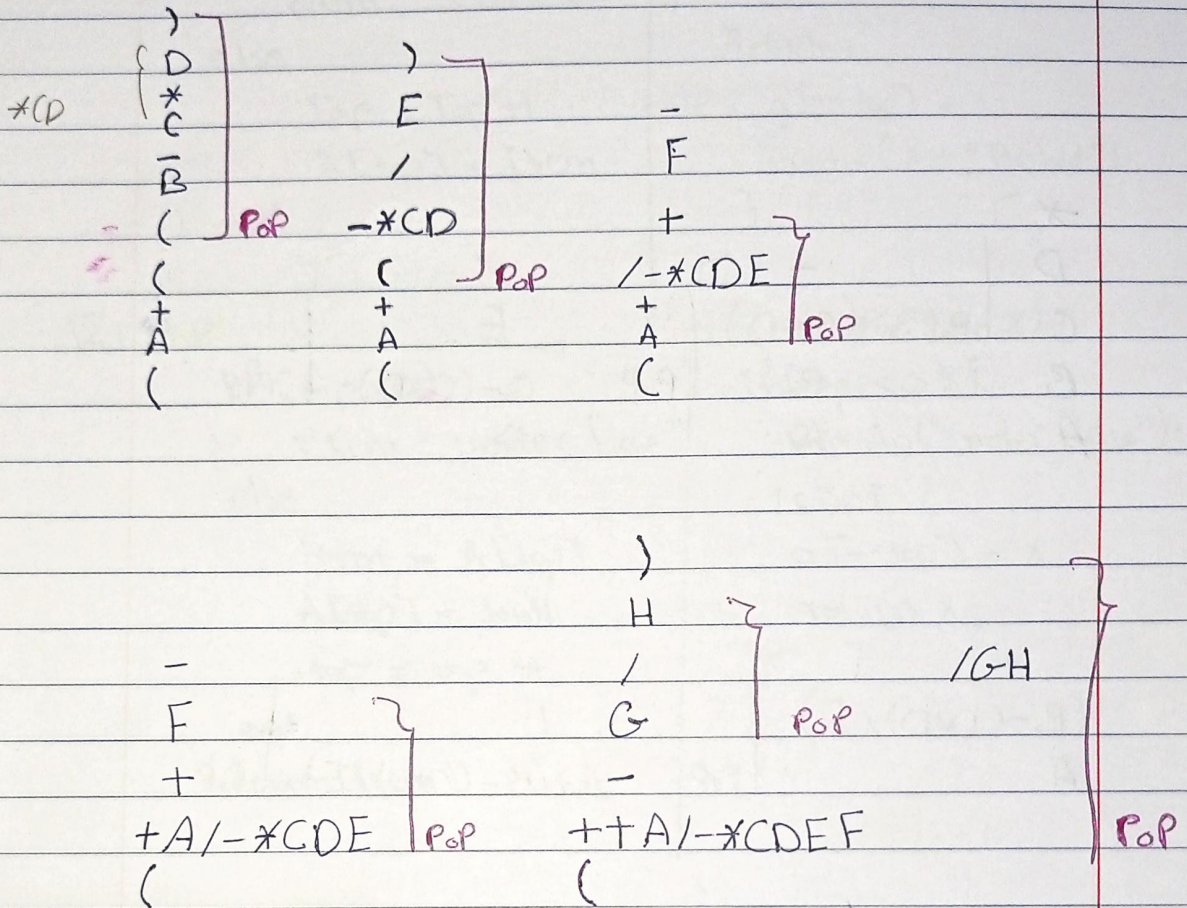 )
D
*
*CD
C
-
B
( PoP
(
+
A
(
)
E
/
-*CD
( PoP
+
A
(
-
F
+
/-*CDE
+
A PoP
(
-
F
+
+A/-*CDE PoP
(
)
H
/
G PoP
-
++A/-*CDEF
(
/GH
PoP